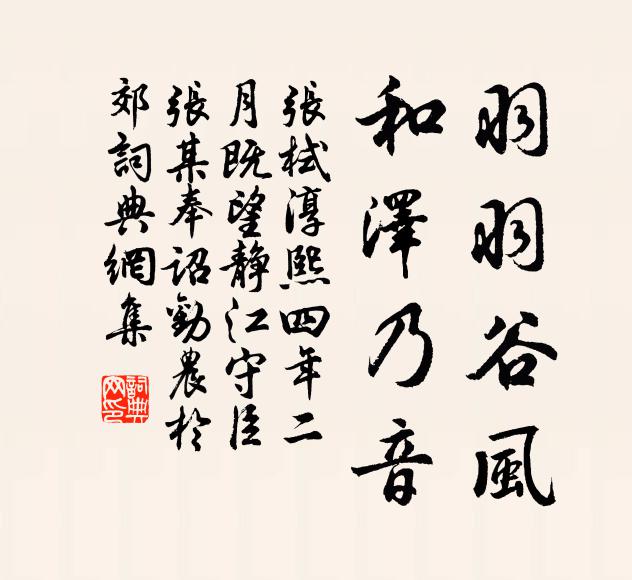 羽羽谷風
和澤乃音
張栻淳熙四年二
月既望靜江守臣
張某奉詔勸農於
郊詞典網集
詞典
网印